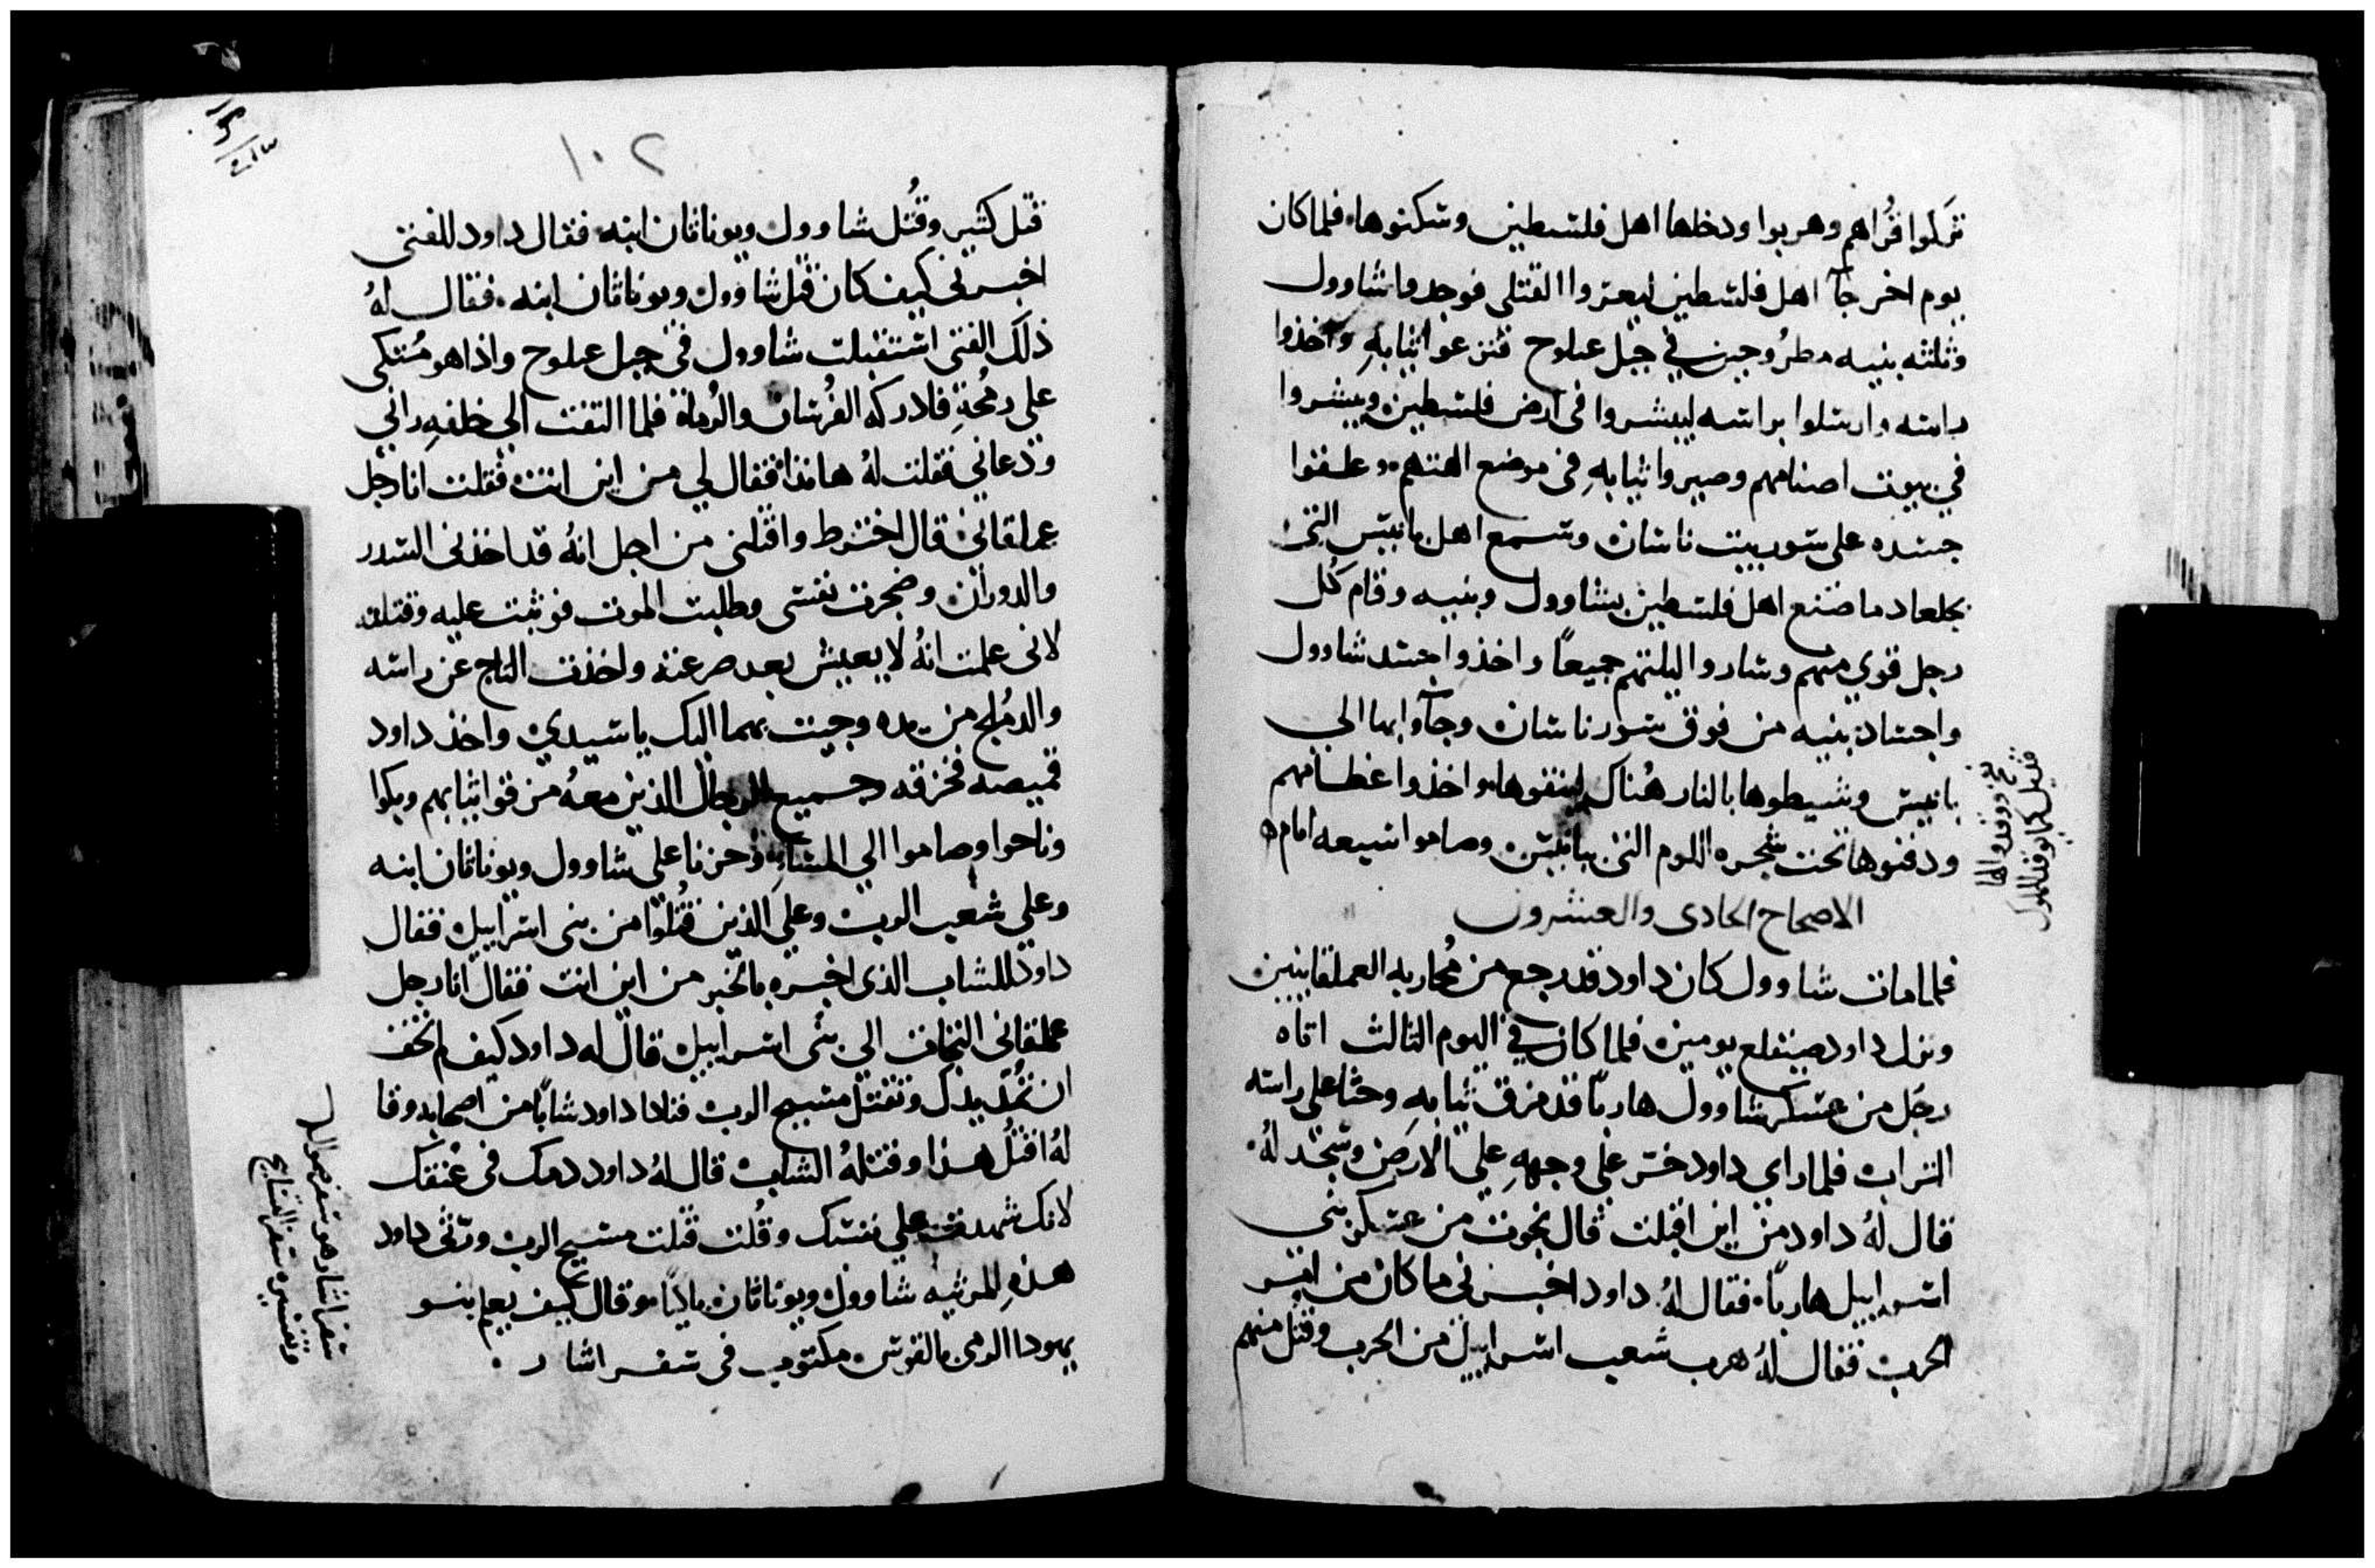 تركوا قُراهم وهربوا ودخلها اهل فلسطين وسكنوها. فلما كان
يوم اخر جآ اهل فلسطين ليعتروا القتلى فوجدوا شاوول
وثلثه بنيه مطرُوحين في جبل عبلوح فنزعوا ثيابهِ واخذوا
راسه وارسلوا براسه ليبشروا في ارض فلسطين ويبشروا
في بيوت اصنامهم وصيروا ثيابهِ في موضع الهتهم. وعلقوا
جسده على سور بيت ناسان وسمع اهل يابيس التي
بجلعاد ما صنع اهل فلسطين بشاوول وبنيه وقام كُل
رجل قوي منهم وساروا ليلتهم جميعاً واخذوا جسد شاوول
واجساد بنيه من فوق سور ناسان وجآوا بها الي
يابيس وشيطوها بالنار هُناك لينقوها. واخذوا عظامهم
ودفنوها تحت شجره اللوم التي بيابيس وصاموا سبعه ايام
الاصحاح الحادي والعشرون
فلما مات شاوول كان داود قد رجع من مُحاربه العملقانيين
ونزل داود صيقلع يومين فلما كان في اليوم الثالث اتاه
رجل من عسكر شاوول هارباً قد مزق ثيابهِ وحثا على راسه
التراب فلما راي داود خر علي وجههِ علي الارض وسجد لهُ.
قال لهُ داود من اين اقبلت قال نجوت من عسكر بني
اسراييل هارباً. فقال لهُ داود اخبرني ما كان من امر
الحرب فقال لهُ هرب شعب اسراييل من الحرب وقتل منهم
١٠٢
قتل كثير وقُتل شاوول ويوناتان ابنه فقال داود للفتى
اخبرني كيف كان قتل شاوول ويوناتان ابنه. فقال لهُ
ذلك الفتى استقبلت شاوول في جبل عبلوح واذا هو مُتكى
على رمُحهِ فادركه الفُرسان والرُماة فلما التفت الي خلفهِ راني
ودعاني فقلت لهُ هانذا فقال لي من اين انت فقلت انا رجل
عملقاني قال اخترط واقتلني من اجل انهُ قد اخذني السدر
والدوران وضجرت نفسي وطلبت الموت فوثبت عليه وقتلته
لاني علمت انهُ لا يعيش بعد صرعته واخذت التاج عن راسه
والدمُلج من يده وجيت بهما اليك يا سيدي واخذ داود
قميصه فخزقه وجميع الرجال الذين معهُ مزقوا ثيابهم وبكوا
وناحوا وصاموا الي المسا حزنا على شاوول ويوناتان ابنه
وعلي شعب الرب وعلي الذين قُتلوا من بني اسراييل فقال
داود للشاب الذي اخبره بالخبر من اين انت فقال انا رجل
عملقاني التجات الي بني اسراييل قال له داود كيف لم تخف
ان تمُد يدك وتقتل مسيح الرب فنادا داود شاباً من اصحابه وقا
لهُ اقتُل هذا وقتلهُ الشاب قال لهُ داود دمك في عُنقك
لانك شهدت علي نفسك وقُلت قتلت مسيح الرب ورثى داود
هذهِ المرثيه شاوول ويوناتان وقال كيف يعلم بنو
يهودا الرمي بالقوس مكتوب في سفر اشار.
سفر اشار هو سفر
وتفسيره سفر